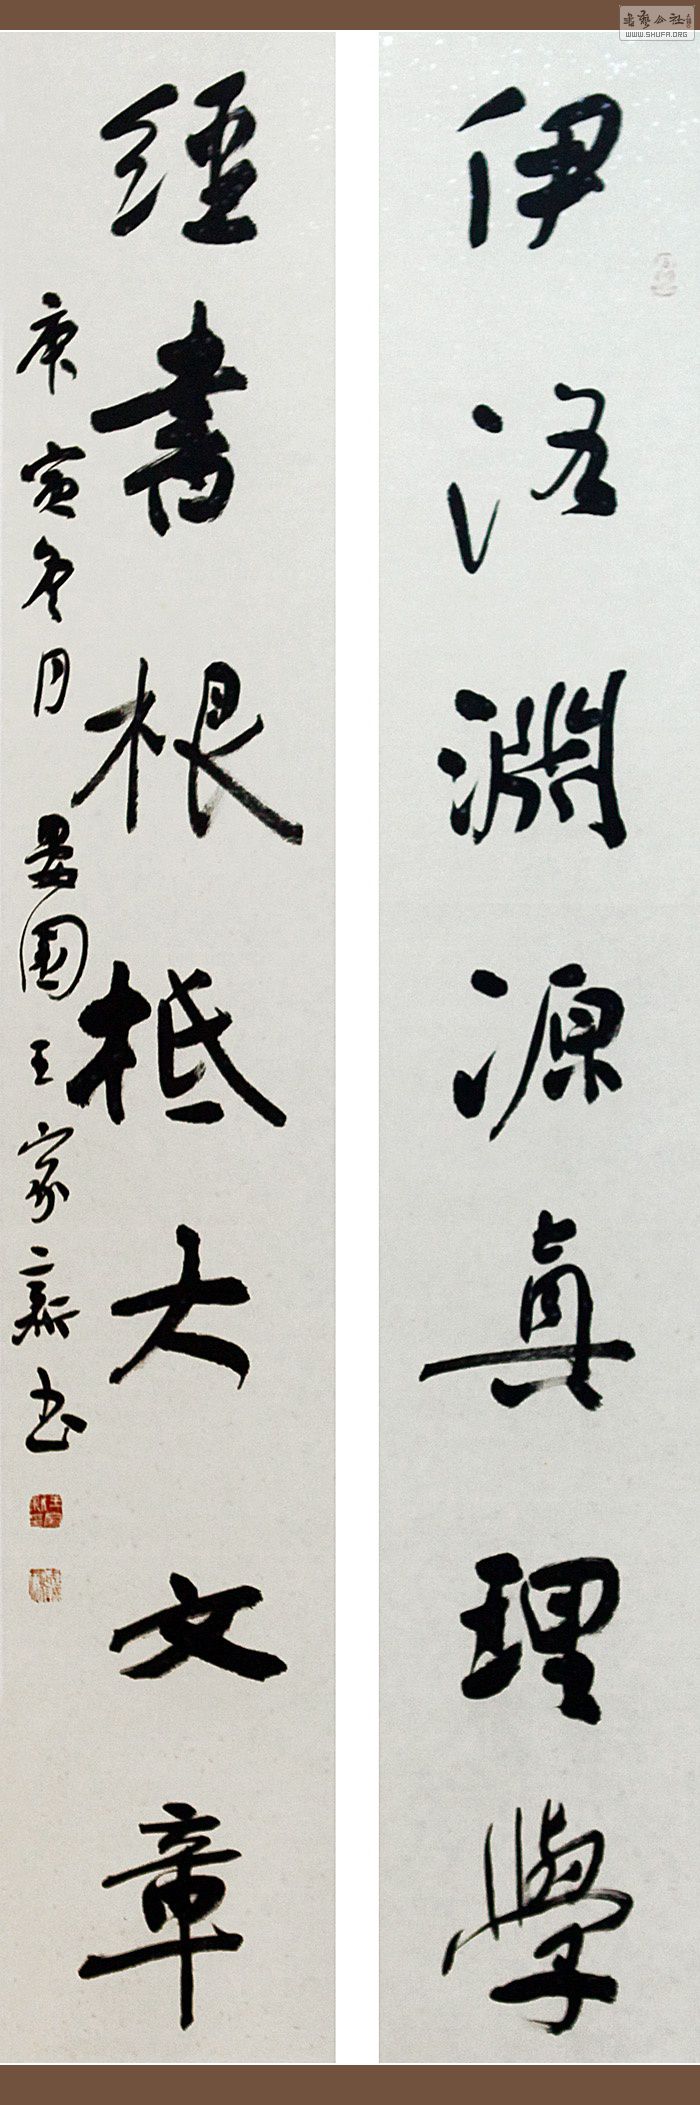 伊洛淵源真理學
經書根柢大文章
庚寅冬月
園王家新书
书艺公社
WWW.SHUFA.ORG